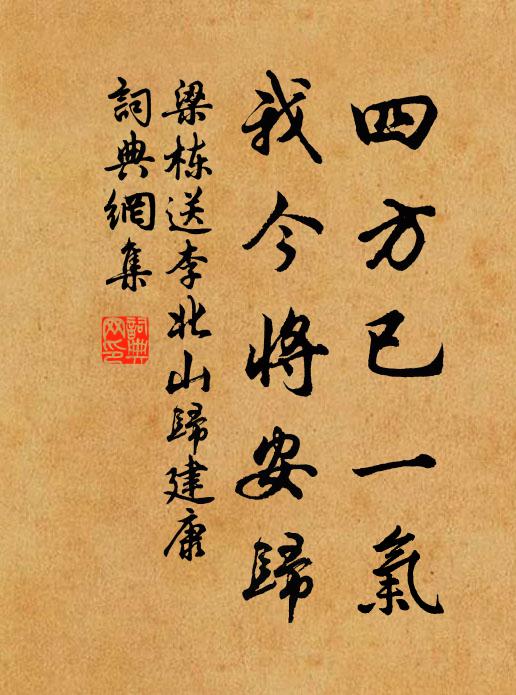 四方已一氣
我今將安歸
梁栋送李北山歸建康
詞典網集
詞典网印